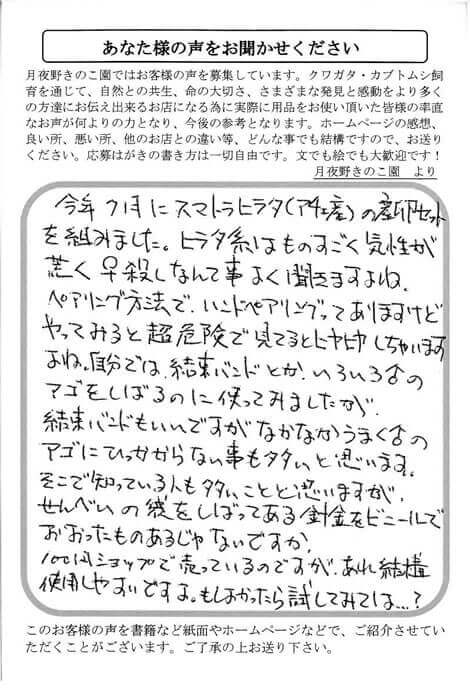 あなた様の声をお聞かせください
月夜野きのこ園ではお客様の声を募集しています。クワガタ・カブトムシ飼
育を通じて、自然との共生、命の大切さ、さまざまな発見と感動をより多く
の方達にお伝え出来るお店になる為に実際に用品をお使い頂いた皆様の率直
なお声が何よりの力となり、今後の参考となります。ホームページの感想、
良い所、悪い所、他のお店との違い等、どんな事でも結構ですので、お送り
ください。応募はがきの書き方は一切自由です。文でも絵でも大歓迎です！
月夜野きのこ園　より
今年7月にスマトラヒラタ(アチェ産)の産卵セット
を組みました。ヒラタ系はものすごく気性が
荒く♀殺しなんて事よく聞きますよね。
ペアリング方法で、ハンドペアリングってありますけど
やってみると超危険で見てるとヒヤヒヤしちゃいます
よね。自分では、結束バンドとか、いろいろ♂の
アゴをしばるのに使ってみましたが、
結束バンドもいいですがなかなかうまく♂の
アゴにひっかからない事も多いと思います。
そこで知っている人も多いことと思いますが、
せんべいの袋をしばってある針金をビニールで
おおったものあるじゃないですか、
100円ショップで売っているのですが、あれ結構
使用しやすいですよ。もしよかったら試してみては…?
このお客様の声を書籍など紙面やホームページなどで、ご紹介させてい
ただくことがございます。ご了承の上お送り下さい。